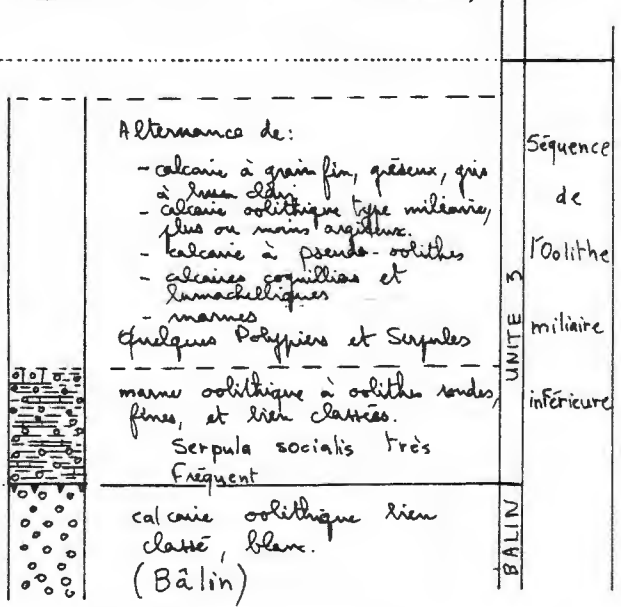 Alternance de:
- calcaire à grain fin, gréseux, gris
à brun clair
- calcaire oolithique type miliaire,
plus ou moins argileux.
- calcaire à pseudo-oolithes
- calcaires coquilliers et
lumachelliques
- marnes
Quelques Polypiers et Serpules
marne oolithique à oolithes rondes,
fines, et bien classées.
Serpula socialis très
Fréquent
calcaire oolithique bien
classé, blanc.
(Bâlin)
UNITE 3
BALIN
Séquence
de
l'Oolithe
miliaire
inférieure